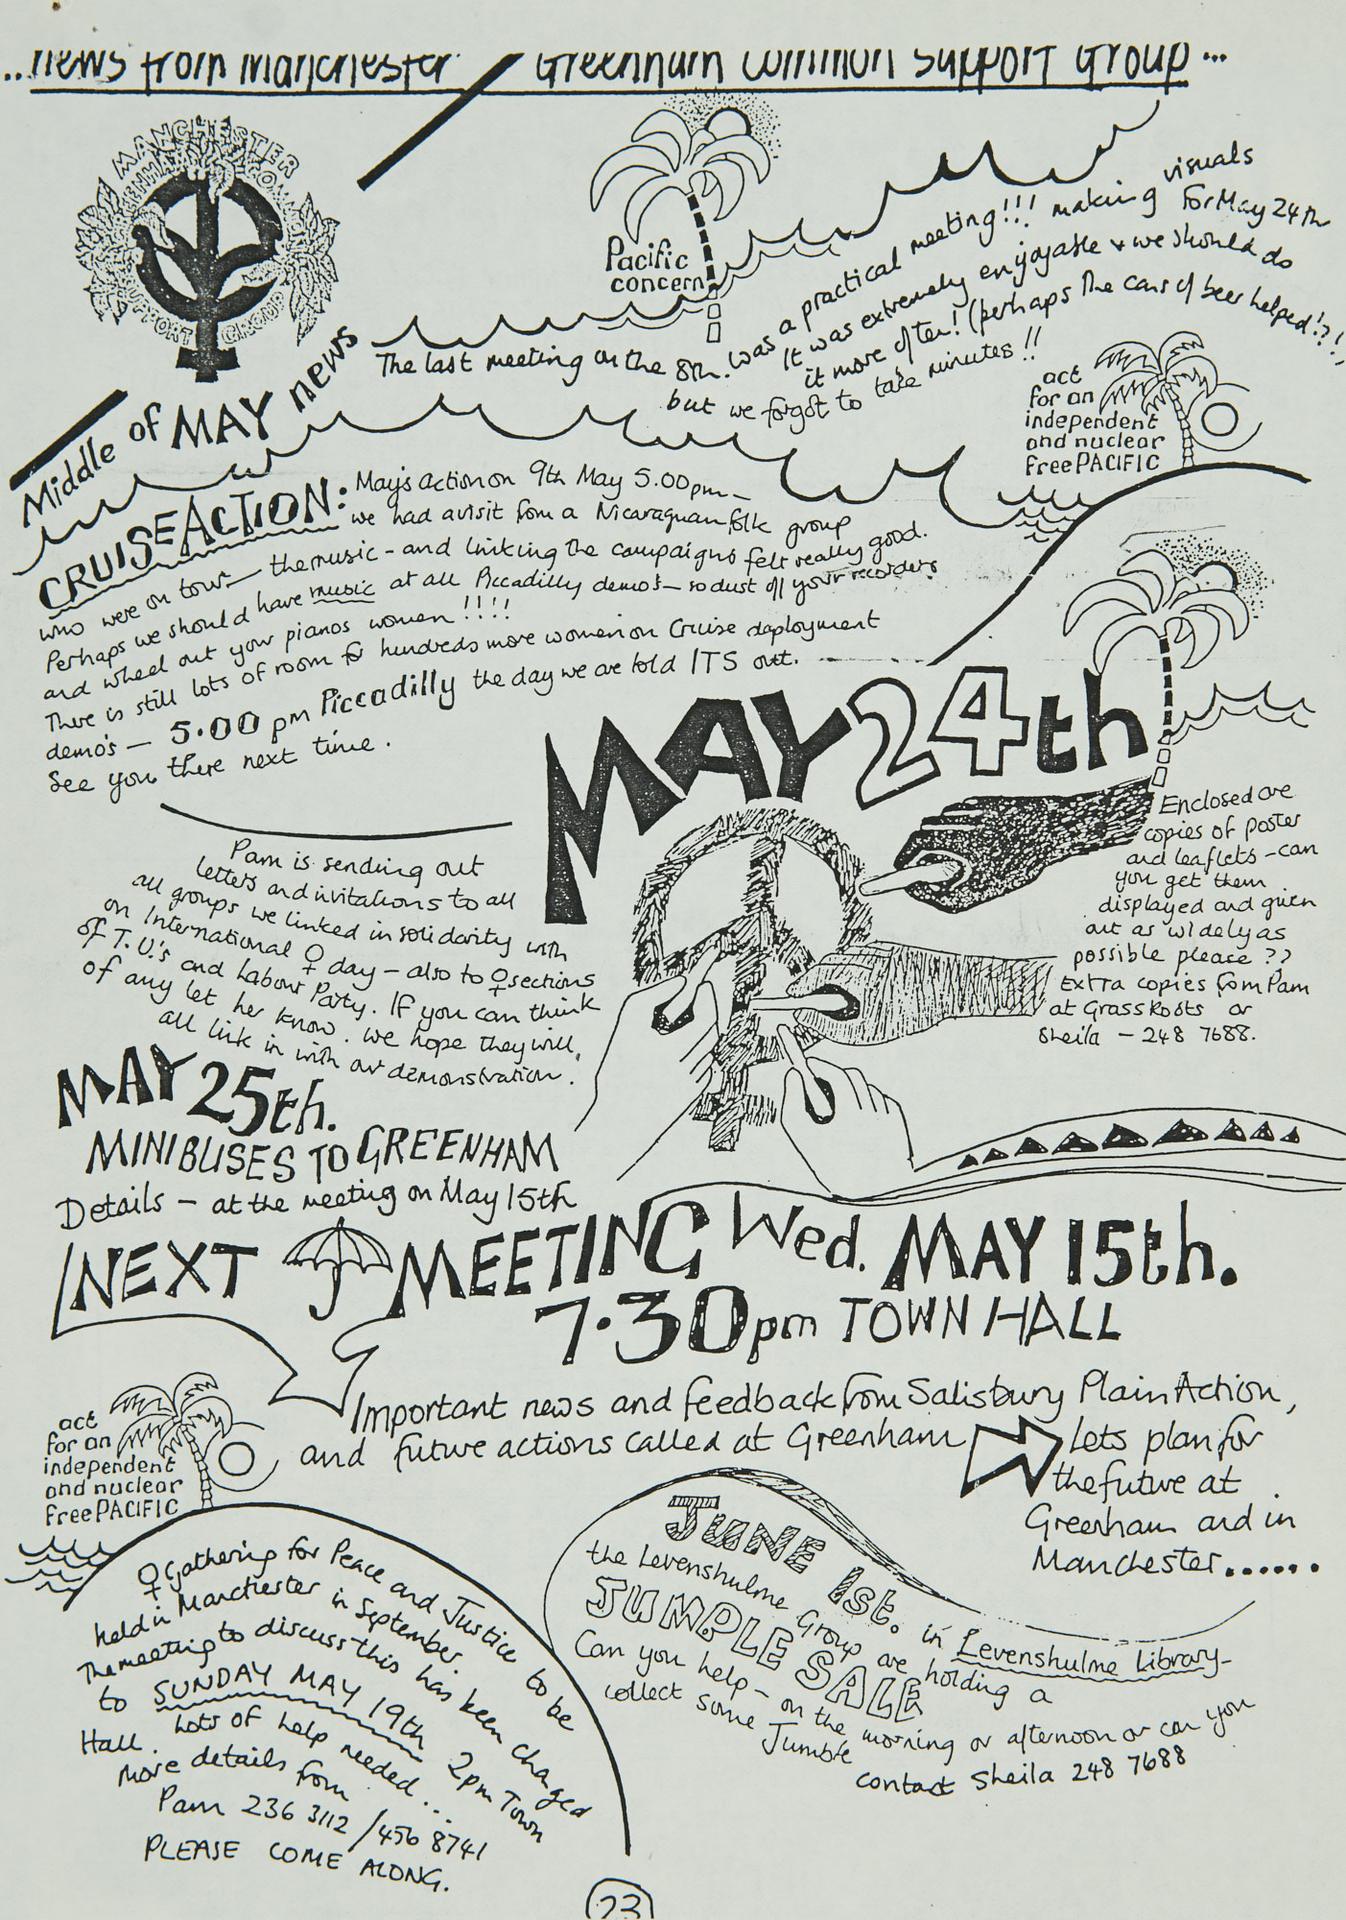 ...news from Manchester / Greenham Common Support Group...
MANCHESTER
GREENHAM COMMON
SUPPORT GROUP
Pacific
concern
Middle of MAY news
The last meeting on the 8th. was a practical meeting!!! making visuals for May 24th
It was extremely enjoyable + we should do
it more often! (perhaps the cans of beer helped!?!)
but we forgot to take minutes!!
act
for an
independent
and nuclear
free PACIFIC
CRUISE ACTION: May's action on 9th May 5.00pm -
we had a visit from a Nicaraguan folk group
who were on tour - the music - and linking the campaigns felt really good.
Perhaps we should have music at all Piccadilly demo's - so dust off your recorders
and wheel out your pianos women!!!!
There is still lots of room for hundreds more women on Cruise deployment
demo's - 5.00 pm Piccadilly the day we are told ITS out.
See you there next time.
MAY 24th
Enclosed are
copies of poster
and leaflets - can
you get them
displayed and given
out as widely as
possible please ??
Extra copies from Pam
at GrassRoots or
Sheila - 248 7688.
Pam is sending out
letters and invitations to all
all groups we linked in solidarity with
on International ♀ day - also to ♀ sections
of T.U.'s and Labour Party. If you can think
of any let her know. We hope they will
all link in with our demonstration.
MAY 25th.
MINIBUSES TO GREENHAM
Details - at the meeting on May 15th
NEXT MEETING Wed. MAY 15th.
7.30pm TOWN HALL
Important news and feedback from Salisbury Plain Action,
and future actions called at Greenham
Lets plan for
the future at
Greenham and in
Manchester......
act
for an
independent
and nuclear
free PACIFIC
♀ Gathering for Peace and Justice to be
held in Manchester in September.
The meeting to discuss this has been changed
to SUNDAY MAY 19th 2pm Town
Hall. Lots of help needed...
More details from
Pam 236 3112 / 456 8741
PLEASE COME ALONG.
JUNE 1st. in Levenshulme Library -
the Levenshulme Group are holding a
JUMBLE SALE
Can you help - on the morning or afternoon or can you
collect some Jumble
contact Sheila 248 7688
23